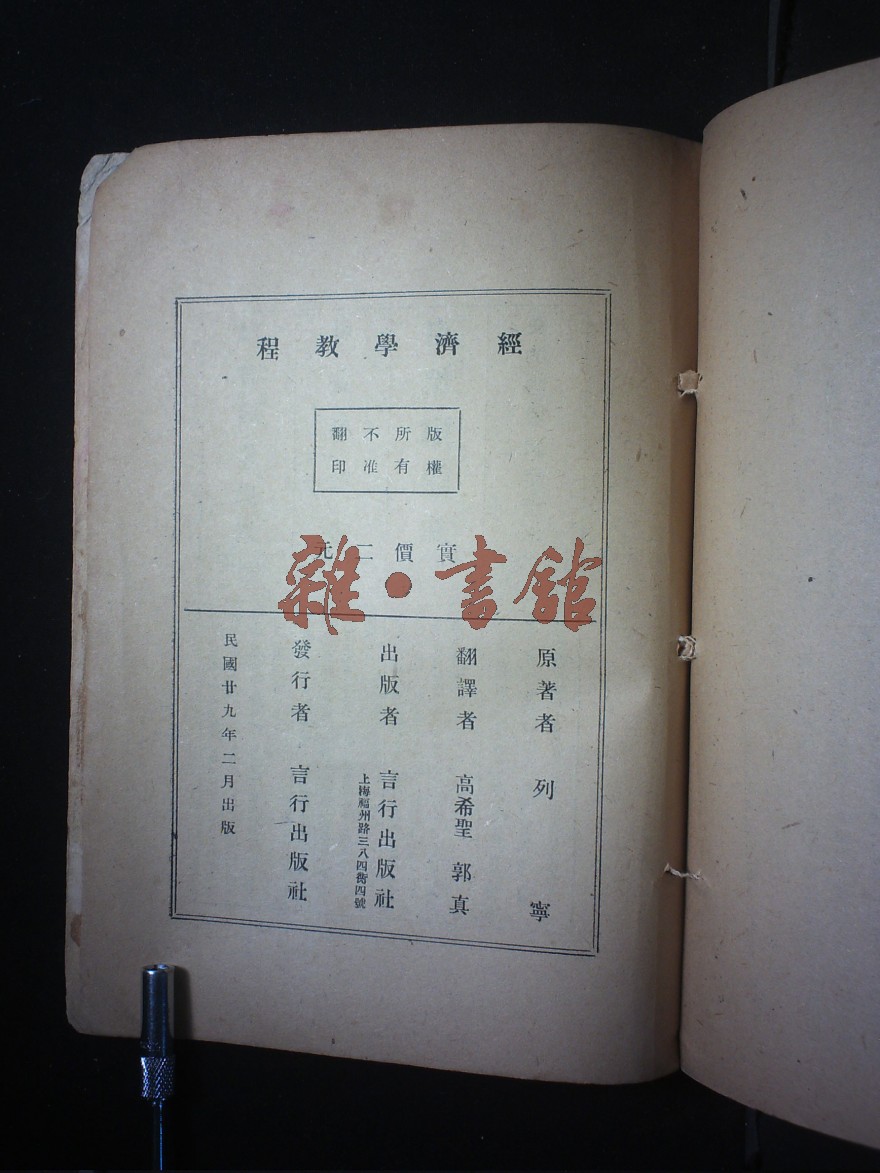 經濟學教程
版權
所有
不准
翻印
實價二元
原著者 列寧
翻譯者 高希聖 郭真
出版者 言行出版社
上海福州路三八四衖四號
發行者 言行出版社
民國廿九年二月出版
雜·書館